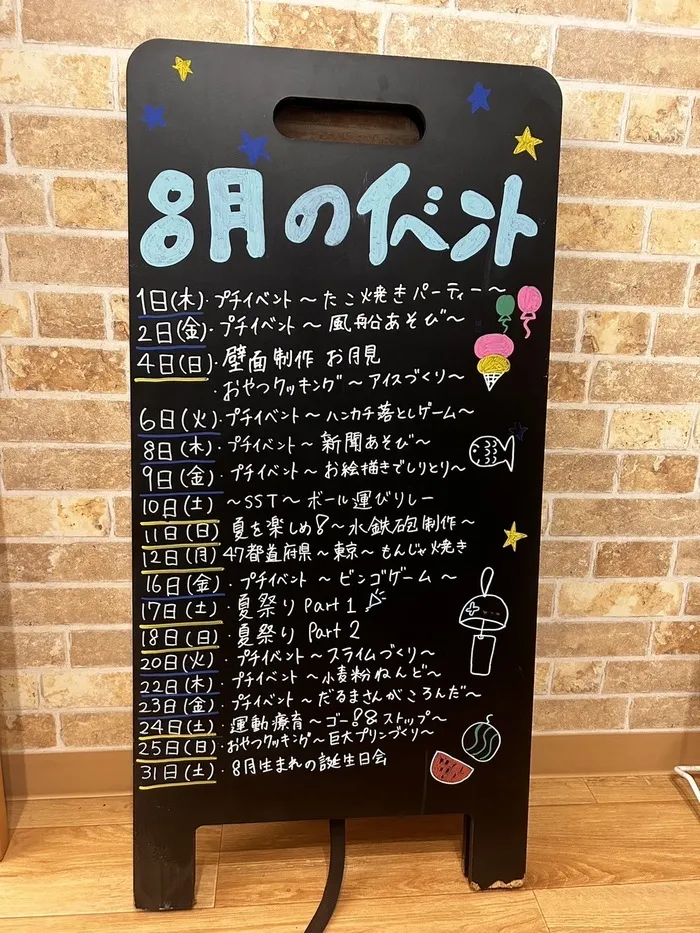 8月のイベント
1日(木)・プチイベント～たこ焼きパーティー～
2日(金)・プチイベント～風船あそび～
4日(日)・壁面制作 お月見
・おやつクッキング～アイスづくり～
6日(火)・プチイベント～ハンカチ落としゲーム～
8日(木)・プチイベント～新聞あそび～
9日(金)・プチイベント～お絵描きでしりとり～
10日(土) ～SST～ボール運びリレー
11日(日) 夏を楽しめ!～水鉄砲制作～
12日(月) 47都道府県～東京～もんじゃ焼き
16日(金)・プチイベント～ビンゴゲーム～
17日(土)・夏祭り Part 1
18日(日)・夏祭り Part 2
20日(火)・プチイベント～スライムづくり～
22日(木)・プチイベント～小麦粉ねんど～
23日(金)・プチイベント～だるまさんがころんだ～
24日(土)・運動療育～ゴー!!ストップ～
25日(日)・おやつクッキング～巨大プリンづくり～
31日(土)・8月生まれの誕生日会